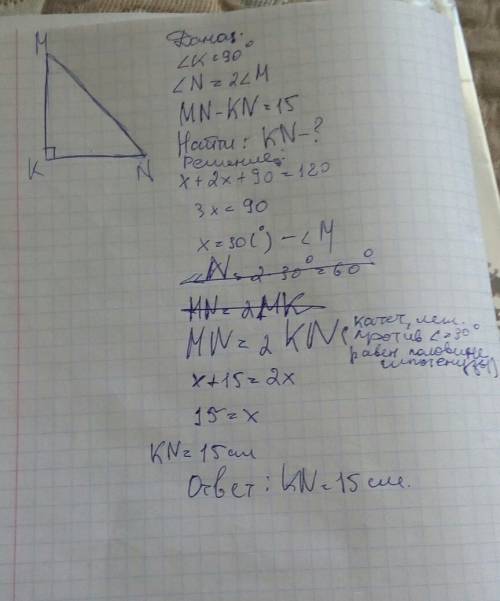 M
K
N
Дано:
∠K=90°
∠N=2∠M
MN-KN=15
Найти: KN-?
Решение:
x+2x+90=180
3x=90
x=30(°) - ∠M
∠N=2·30°=60°
MN=2MK
MN=2KN (катет, леж.
против ∠=30°
равен половине
гипотенузы)
x+15=2x
15=x
KN=15см
Ответ: KN=15см.